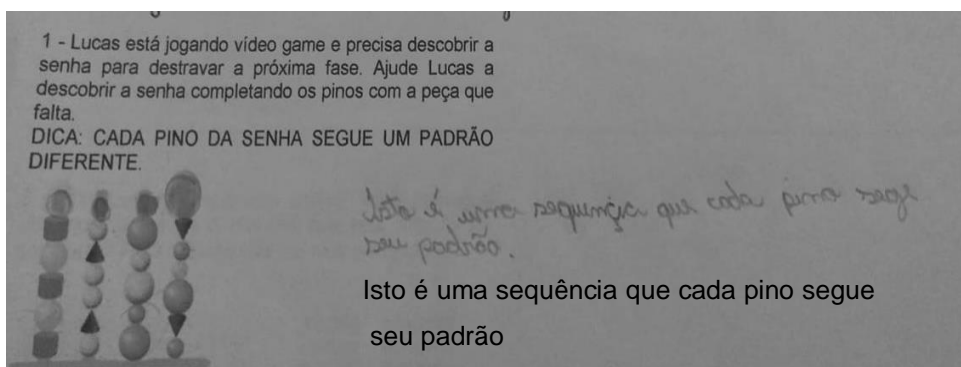 1 - Lucas está jogando vídeo game e precisa descobrir a
senha para destravar a próxima fase. Ajude Lucas a
descobrir a senha completando os pinos com a peça que
falta.
DICA: CADA PINO DA SENHA SEGUE UM PADRÃO
DIFERENTE.
Isto é uma sequinçia que cada pino sege
seu padrão.
Isto é uma sequência que cada pino segue
seu padrão